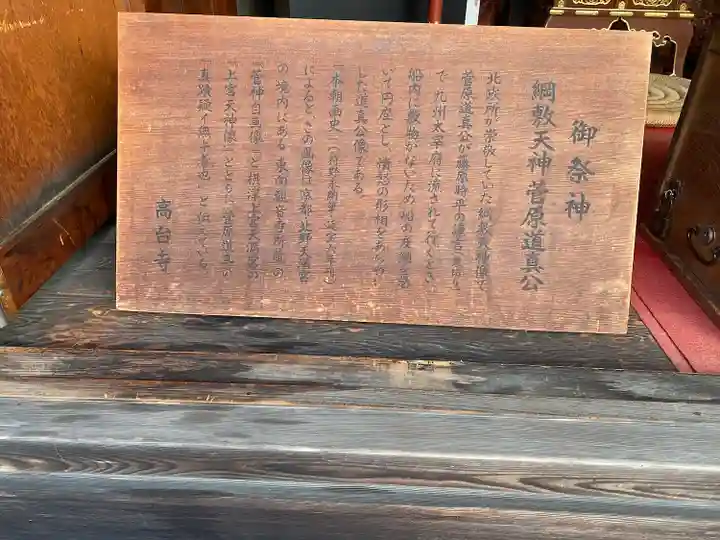 御祭神
綱敷天神菅原道真公
北政所が崇敬していた綱敷天神像で
菅原道真公が藤原時平の讒言
で、九州太宰府に流されて行くとき、
船内に敷物がないため船の友綱を巻
いて円座とし、憤怒の形相をあらわ
した道真公像である。
「本朝画史」(狩野永納筆・延宝六年
によると、この画像は京都・北野天満宮
の境内にある東向観音寺所蔵の
「菅神自画像」と摂津上宮天満宮の
「上宮天神像」とともに「菅原道真の
真蹟疑イ無キ者也」と伝えている。
高台寺